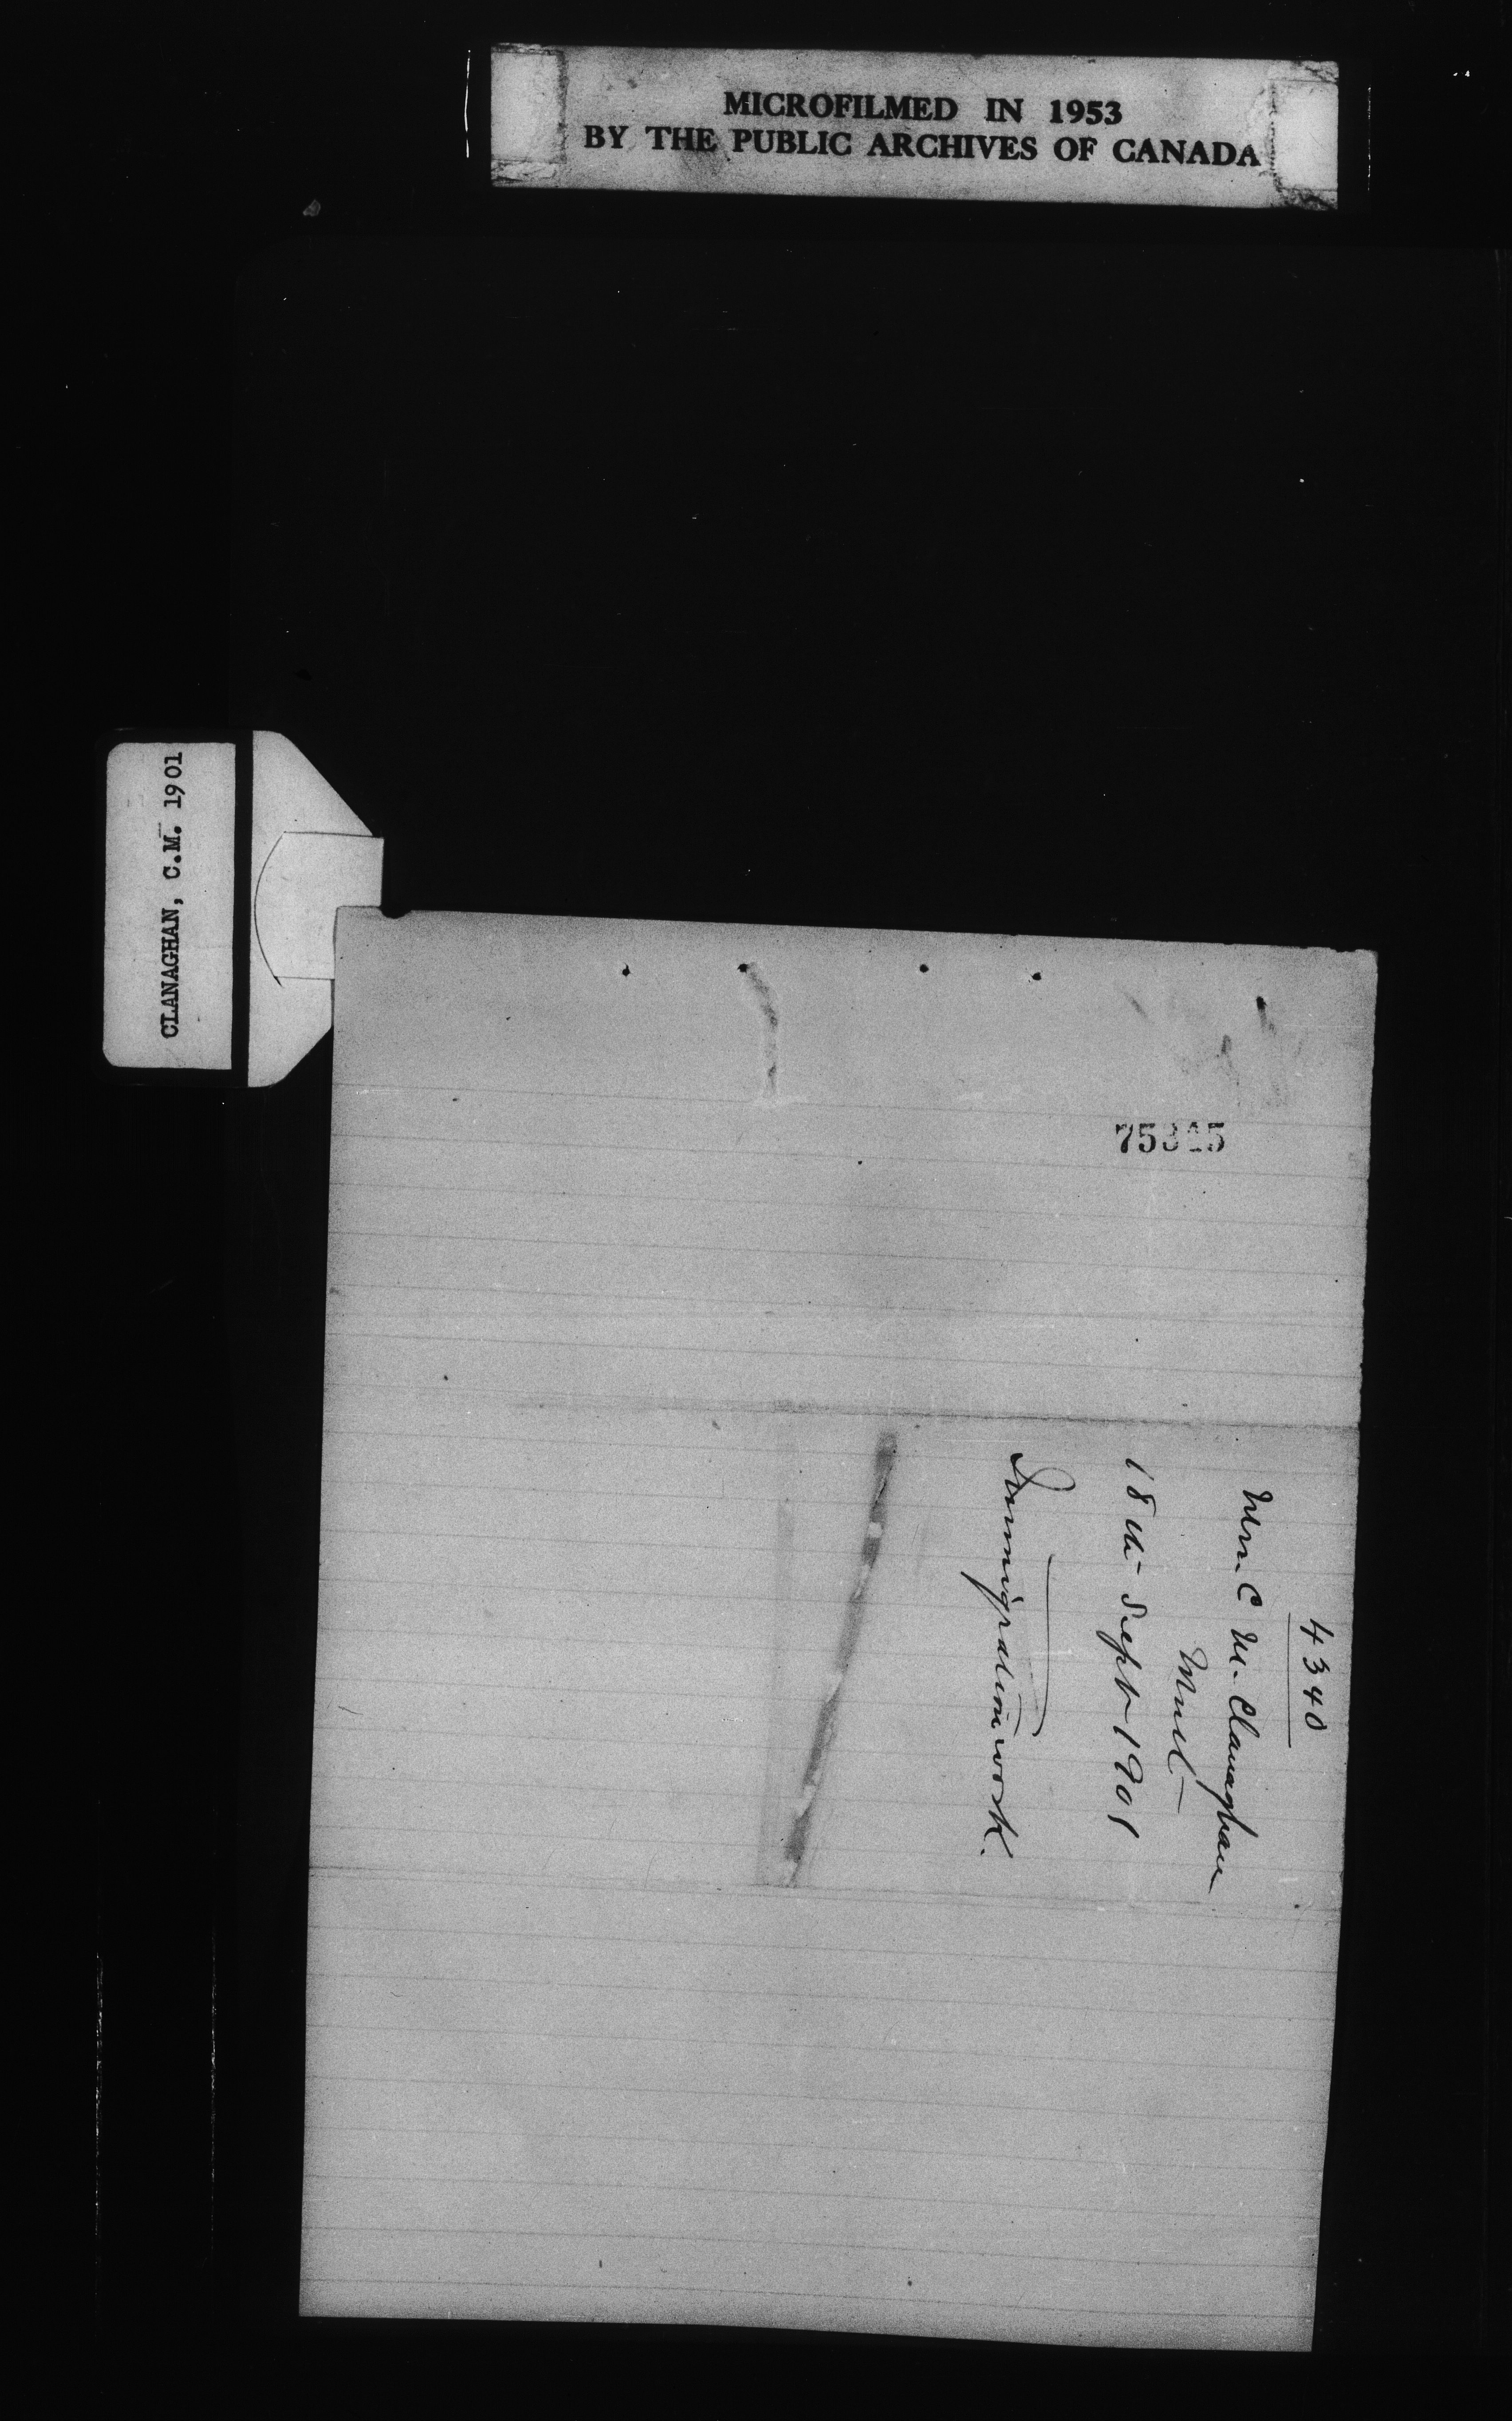 MICROFILMED IN 1953
BY THE PUBLIC ARCHIVES OF CANADA
CLANAGHAN, C.M. 1901
75345
4340
Mrs. C M. Clanaghan
18th Sept 1901
Immigration work.